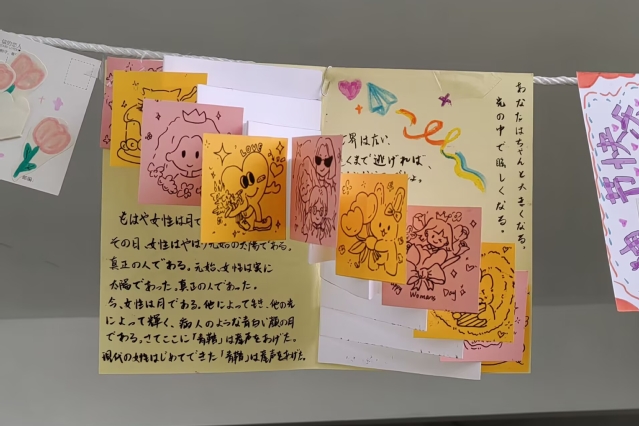 あなたはちゃんと大きくなる。
光の中で眩しくなる。
で界はたい、
くまで逃げれば、
LOVE
Womans Day
もはや女性は月で
その日、女性はやはり元始の太陽である。
真正の人である。元始、女性は実に
太陽であった。真正の人であった。
今、女性は月である。他によって生き、他の光
によって輝く、病人のような青白い顔の月
である。さてここに「青鞜」は産声をあげた。
現代の女性はじめてできた「青鞜」は産声をあげた。
节快乐